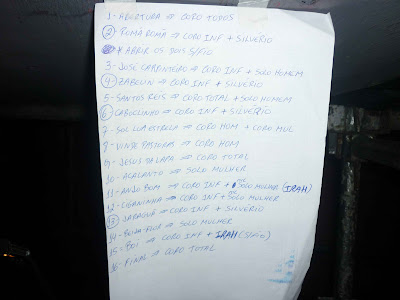 1 - ABERTURA ⇒ CORO TODOS
2 - ROMÃ ROMÃ ⇒ CORO INF + SILVÉRIO
* ABRIR OS DOIS S/FIO
3 - JOSÉ CARPINTEIRO ⇒ CORO INF + SOLO HOMEM
4 - ZABELIN ⇒ CORO INF + SILVÉRIO
5 - SANTOS REIS ⇒ CORO TOTAL + SOLO HOMEM
6 - CABOCLINHO ⇒ CORO INF + SILVÉRIO
7 - SOL LUA ESTRELA ⇒ CORO HOM + CORO MUL
8 - VINDE PASTORAS ⇒ CORO HOM
9 - JESUS DA LAPA ⇒ CORO TOTAL
10 - ACALANTO ⇒ SOLO MULHER
11 - ANJO BOM ⇒ CORO INF + SOLO MULHER (IRAH)
12 - CIGANINHA ⇒ CORO INF + SOLO MULHER
13 - JARAGUÁ ⇒ CORO INF + SILVÉRIO
14 - BEIJA-FLOR ⇒ SOLO MULHER
15 - BOI ⇒ CORO INF + IRAH (S/FIO)
16 - FINAL ⇒ CORO TOTAL